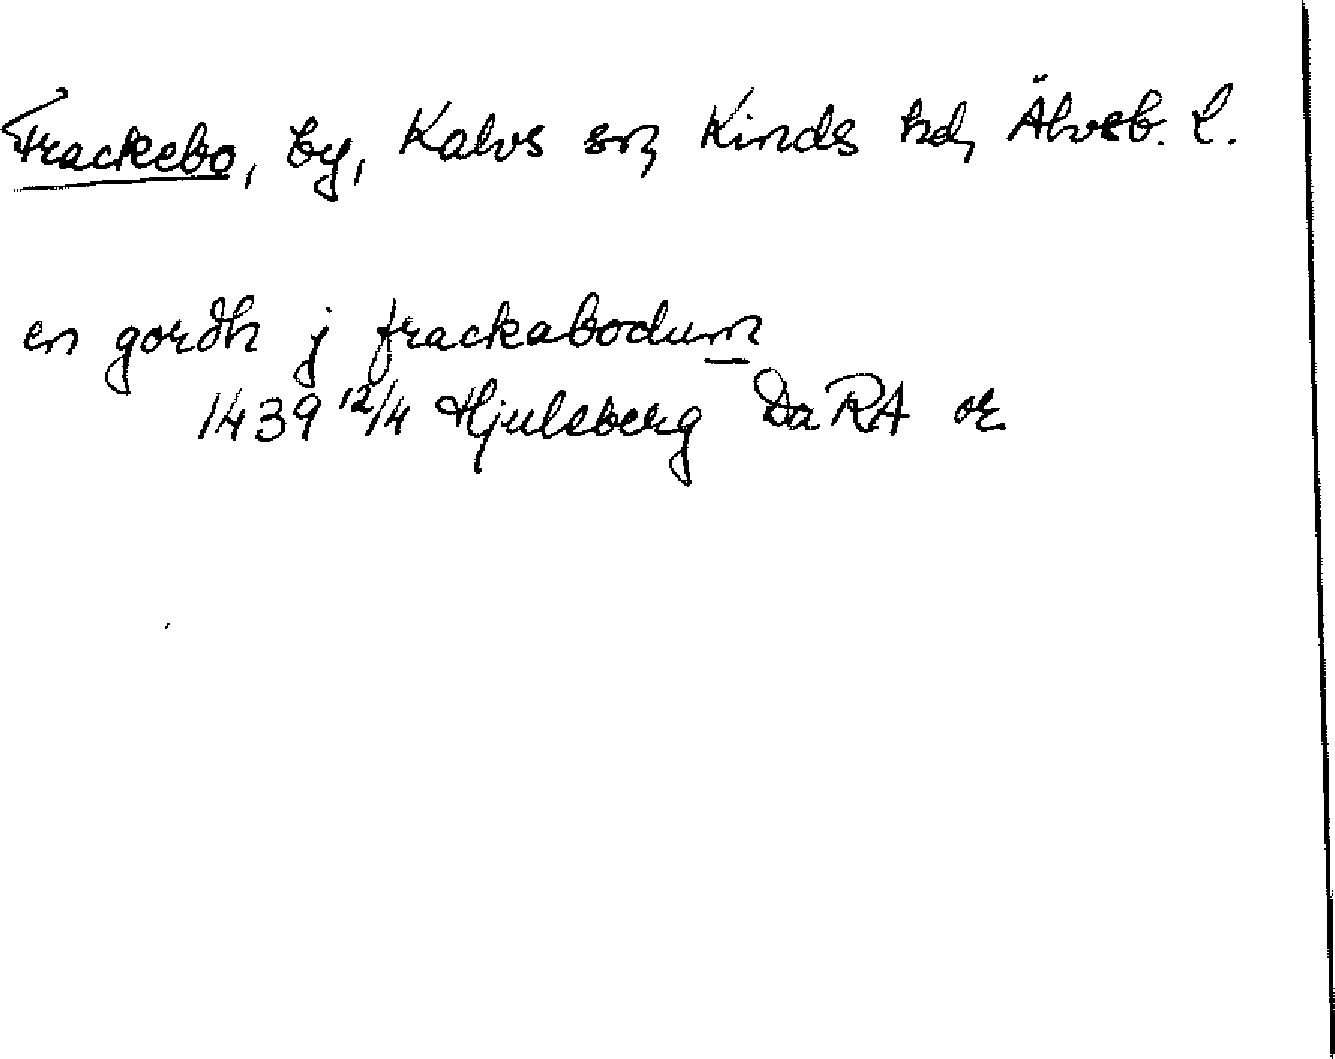 Frackebo, by, Kalvs sn, Kinds hd, Älvsb. l.
en gordh j frackabodum
1439 12/4 Hjulsberg DaRA or